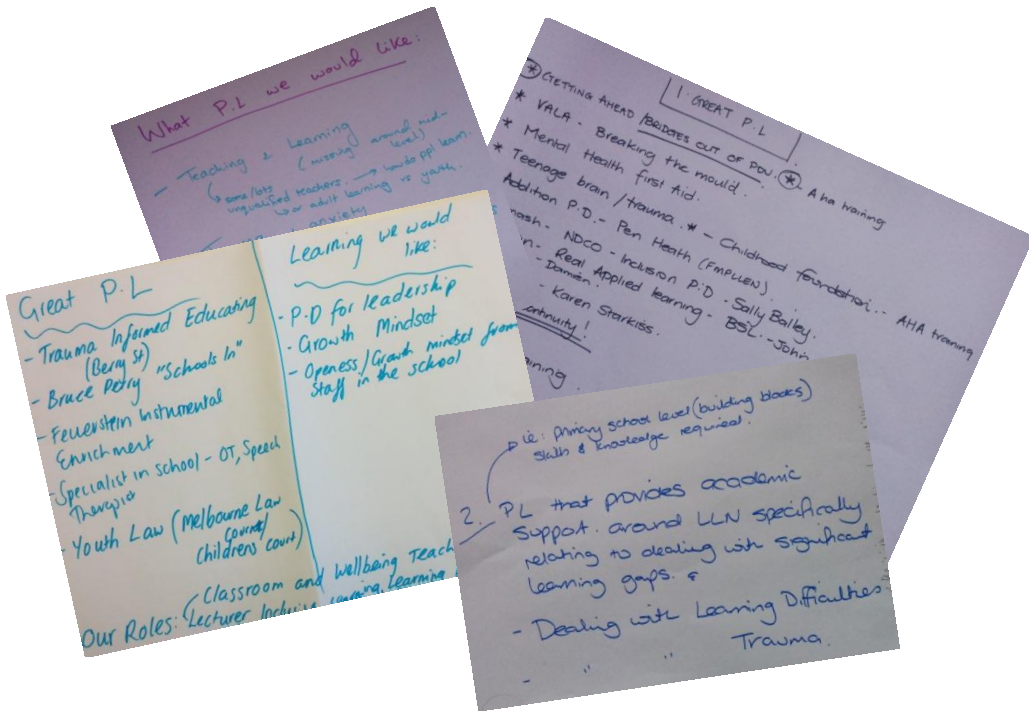 What P.L we would like:
- Teaching & Learning
(missing around mid-level)
some/lots unqualified teachers. → how do ppl learn.
or adult learning vs youth.
anxiety
1. GREAT P.L
* GETTING AHEAD / BRIDGES OUT OF POV. * - Aha training
* VALA - Breaking the mould.
* Mental Health first Aid.
* Teenage brain / trauma. * - Childhood foundation. - AHA training
Addition P.D. - Pen Health (FMPLLEN)
- NDCO - Inclusion P.D - Sally Bailey.
- Real Applied learning - BSL. - John
- Damian.
- Karen Starkiss.
Great P.L
- Trauma Informed Educating
(Berry St)
- Bruce Perry "Schools In"
- Feuerstein Instrumental
Enrichment
- Specialist in school - OT, Speech
Therapist
- Youth Law (Melbourne Law
Court/
Childrens court)
Classroom and Wellbeing Teach
Our Roles: Lecturer
Learning we would
like:
- P.D for leadership
- Growth Mindset
- Openess/Growth mindset from
staff in the school
ie: primary school level (building blocks)
skills & knowledge required.
2. PL that provides academic
support around LLN specifically
relating to dealing with significant
learning gaps. &
- Dealing with Learning Difficulties
- " " Trauma.